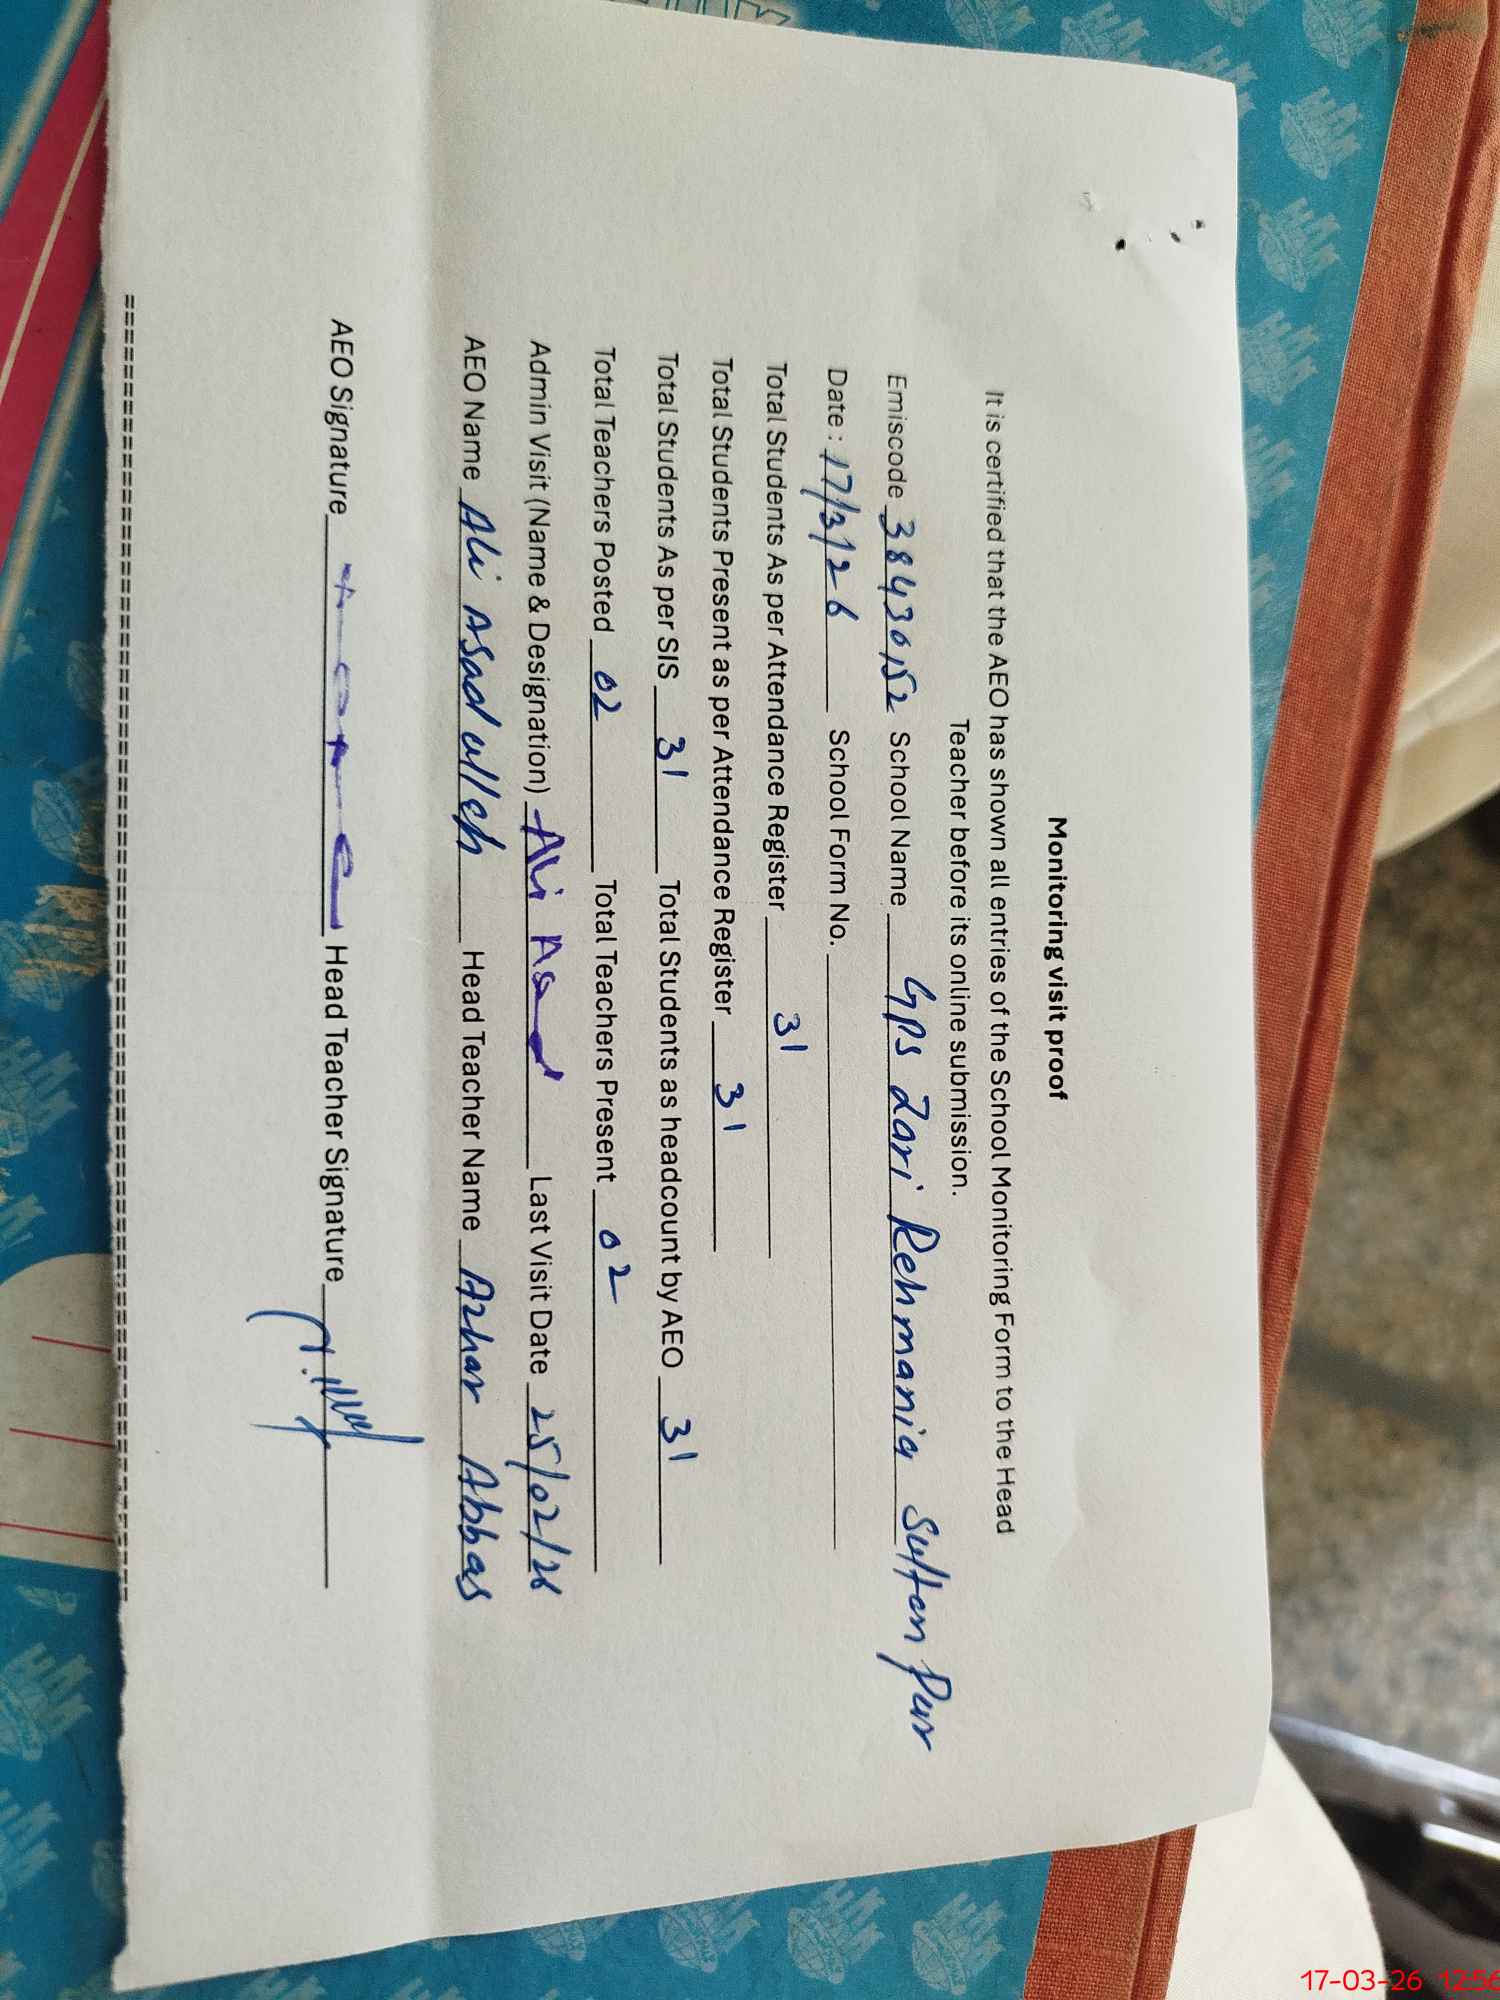 Monitoring visit proof
It is certified that the AEO has shown all entries of the School Monitoring Form to the Head
Teacher before its online submission.
Emiscode 38430152 School Name GPS Zari Rehmania Sultan Pur
Date : 17/3/26 School Form No.
Total Students As per Attendance Register 31
Total Students Present as per Attendance Register 31
Total Students As per SIS 31 Total Students as headcount by AEO 31
Total Teachers Posted 02 Total Teachers Present 02
Admin Visit (Name & Designation) Ali Asad Last Visit Date 25/02/26
AEO Name Ali Asad ullah Head Teacher Name Azhar Abbas
AEO Signature Head Teacher Signature
17-03-26 12:56